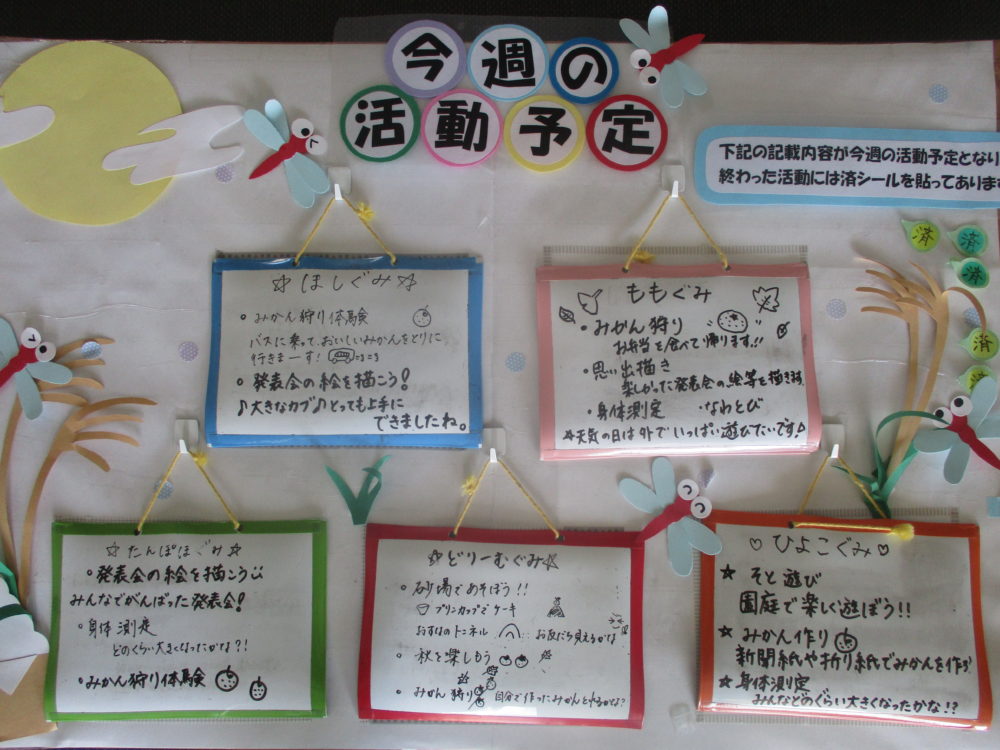 今週の
活動予定
下記の記載内容が今週の活動予定となり
終わった活動には済シールを貼ってあります
済
済
済
済
済
☆ほしぐみ☆
・みかん狩り体験
バスに乗って、おいしいみかんをとりに
行きまーす!
・発表会の絵を描こう!
♪大きなカブ♪とっても上手に
できましたね。
ももぐみ
・みかん狩り
お弁当を食べて帰ります!!
・思い出描き
楽しかった発表会の絵等を描きます
・身体測定 ・なわとび
☆天気の日は外でいっぱい遊びたいです!
☆たんぽぽぐみ☆
・発表会の絵を描こう
みんなでがんばった発表会!
・身体測定
どのくらい大きくなったかな?!
・みかん狩り体験
☆どりーむぐみ☆
・砂場であそぼう!!
プリンカップでケーキ
おすなのトンネル ・・・お友だち見えるかな
・秋を楽しもう
・みかん狩り 自分で作ったみかんとれるかな?
♡ひよこぐみ♡
★そと遊び
園庭で楽しく遊ぼう!!
★みかん作り
新聞紙や折り紙でみかんを作
★身体測定
みんなどのぐらい大きくなったかな!?